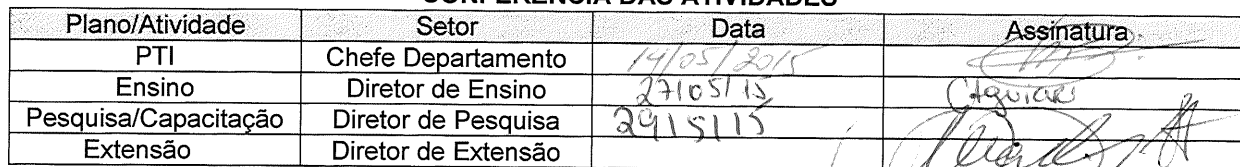 CONFERÊNCIA DAS ATIVIDADES
Plano/Atividade Setor Data Assinatura
PTI Chefe Departamento 14/05/2015
Ensino Diretor de Ensino 27/05/15 CAguiar
Pesquisa/Capacitação Diretor de Pesquisa 29/5/15
Extensão Diretor de Extensão